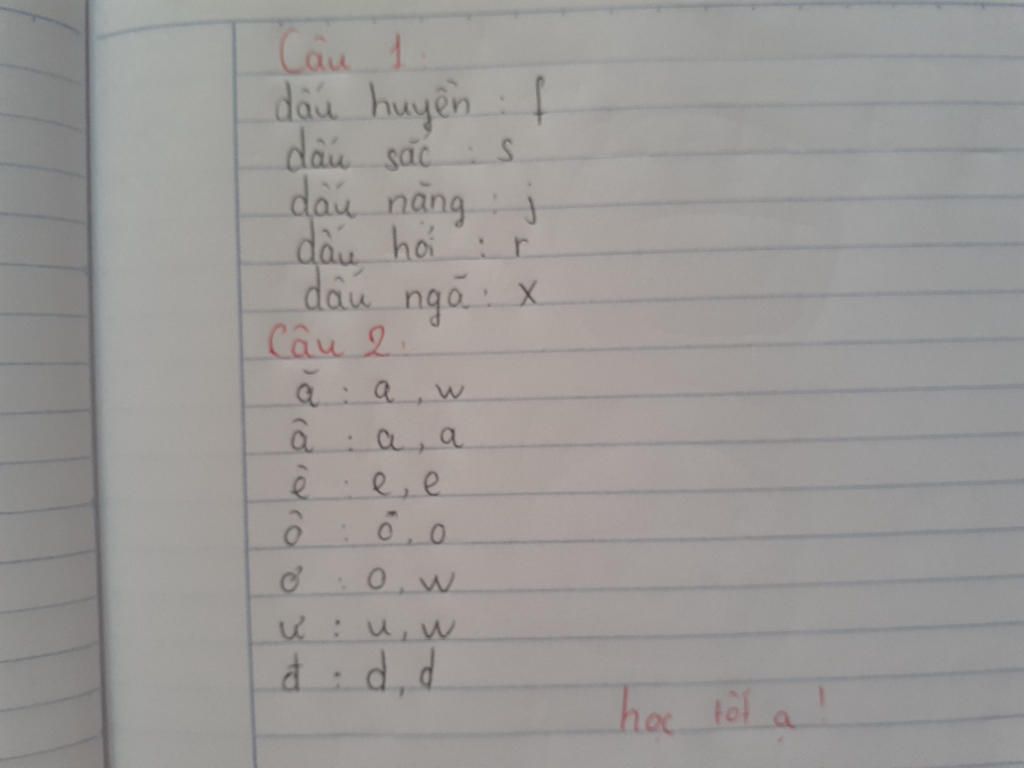 Câu 1:
dấu huyền : f
dấu sắc : s
dấu nặng : j
dấu hỏi : r
dấu ngã : x
Câu 2:
ă : a, w
â : a, a
ê : e, e
ô : o, o
ơ : o, w
ư : u, w
đ : d, d
học tốt ạ !